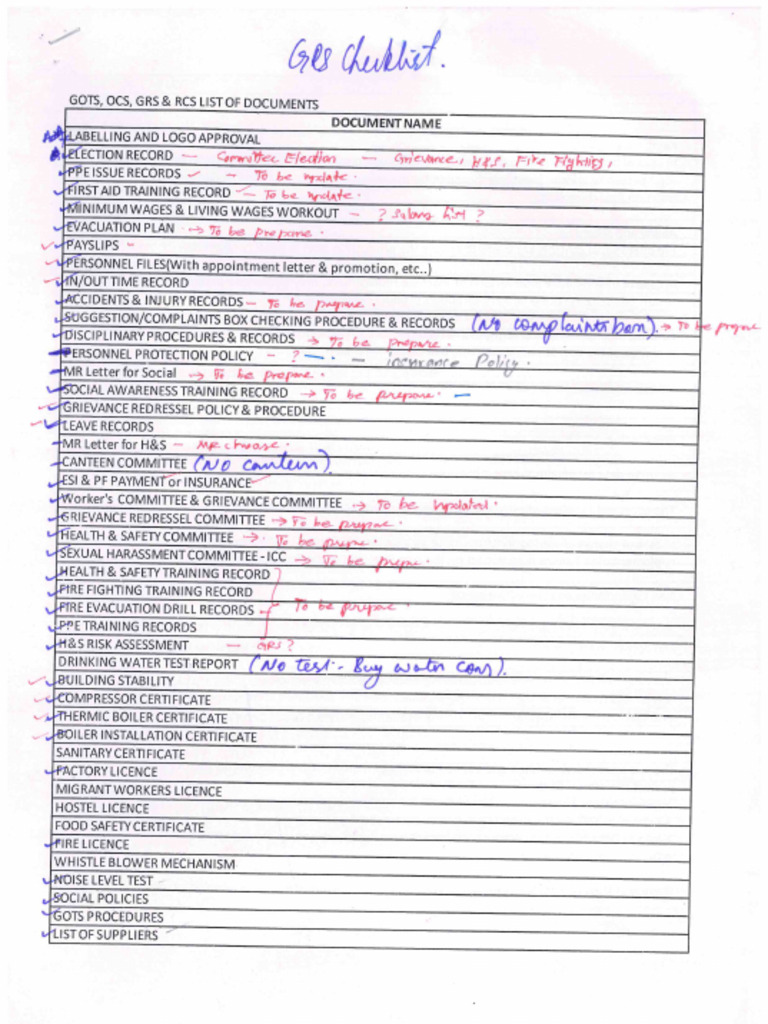 GRS Checklist.
GOTS, OCS, GRS & RCS LIST OF DOCUMENTS
DOCUMENT NAME
LABELLING AND LOGO APPROVAL
ELECTION RECORD — Committee Election — Grievance, H&S, Fire Fighting,
PPE ISSUE RECORDS ✓ — To be update.
FIRST AID TRAINING RECORD — To be update.
MINIMUM WAGES & LIVING WAGES WORKOUT — ? Salary list ?
EVACUATION PLAN → To be prepare.
PAYSLIPS -
PERSONNEL FILES(With appointment letter & promotion, etc..)
IN/OUT TIME RECORD
ACCIDENTS & INJURY RECORDS — To be prepare.
SUGGESTION/COMPLAINTS BOX CHECKING PROCEDURE & RECORDS (No complaints box). → To be prepare
DISCIPLINARY PROCEDURES & RECORDS → To be prepare.
PERSONNEL PROTECTION POLICY - ? — . — insurance Policy.
MR Letter for Social → To be prepare.
SOCIAL AWARENESS TRAINING RECORD → To be prepare. —
GRIEVANCE REDRESSEL POLICY & PROCEDURE
LEAVE RECORDS
MR Letter for H&S — MR
CANTEEN COMMITTEE (No canteen).
ESI & PF PAYMENT or INSURANCE
Worker's COMMITTEE & GRIEVANCE COMMITTEE → To be updated.
GRIEVANCE REDRESSEL COMMITTEE → To be prepare.
HEALTH & SAFETY COMMITTEE → To be prepare.
SEXUAL HARASSMENT COMMITTEE - ICC → To be prepare.
HEALTH & SAFETY TRAINING RECORD
FIRE FIGHTING TRAINING RECORD
FIRE EVACUATION DRILL RECORDS To be prepare.
PPE TRAINING RECORDS
H&S RISK ASSESSMENT — GRS?
DRINKING WATER TEST REPORT (No test - Buy water cans).
BUILDING STABILITY
COMPRESSOR CERTIFICATE
THERMIC BOILER CERTIFICATE
BOILER INSTALLATION CERTIFICATE
SANITARY CERTIFICATE
FACTORY LICENCE
MIGRANT WORKERS LICENCE
HOSTEL LICENCE
FOOD SAFETY CERTIFICATE
FIRE LICENCE
WHISTLE BLOWER MECHANISM
NOISE LEVEL TEST
SOCIAL POLICIES
GOTS PROCEDURES
LIST OF SUPPLIERS